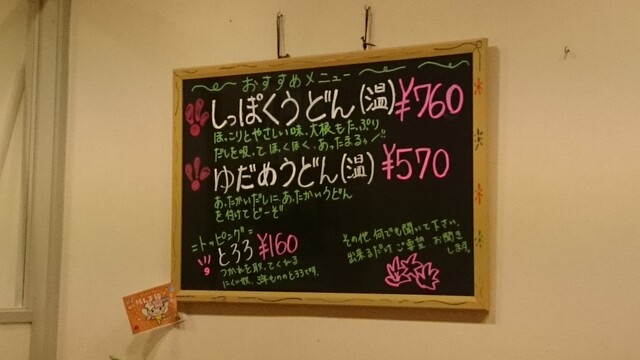 おすすめメニュー
しっぽくうどん(温)¥760
ほっこりとやさしい味、大根もたっぷり
だしを吸ってほくほく、あったまるぅ〜!!
ゆだめうどん(温)¥570
あったかいだしに、あったかいうどん
を付けてどーぞ
=トッピング=
とろろ ¥160
つかれを取ってくれる
にくい奴、3年もののとろろです。
その他、何でも聞いて下さい。
出来るだけご要望お聞き
します。